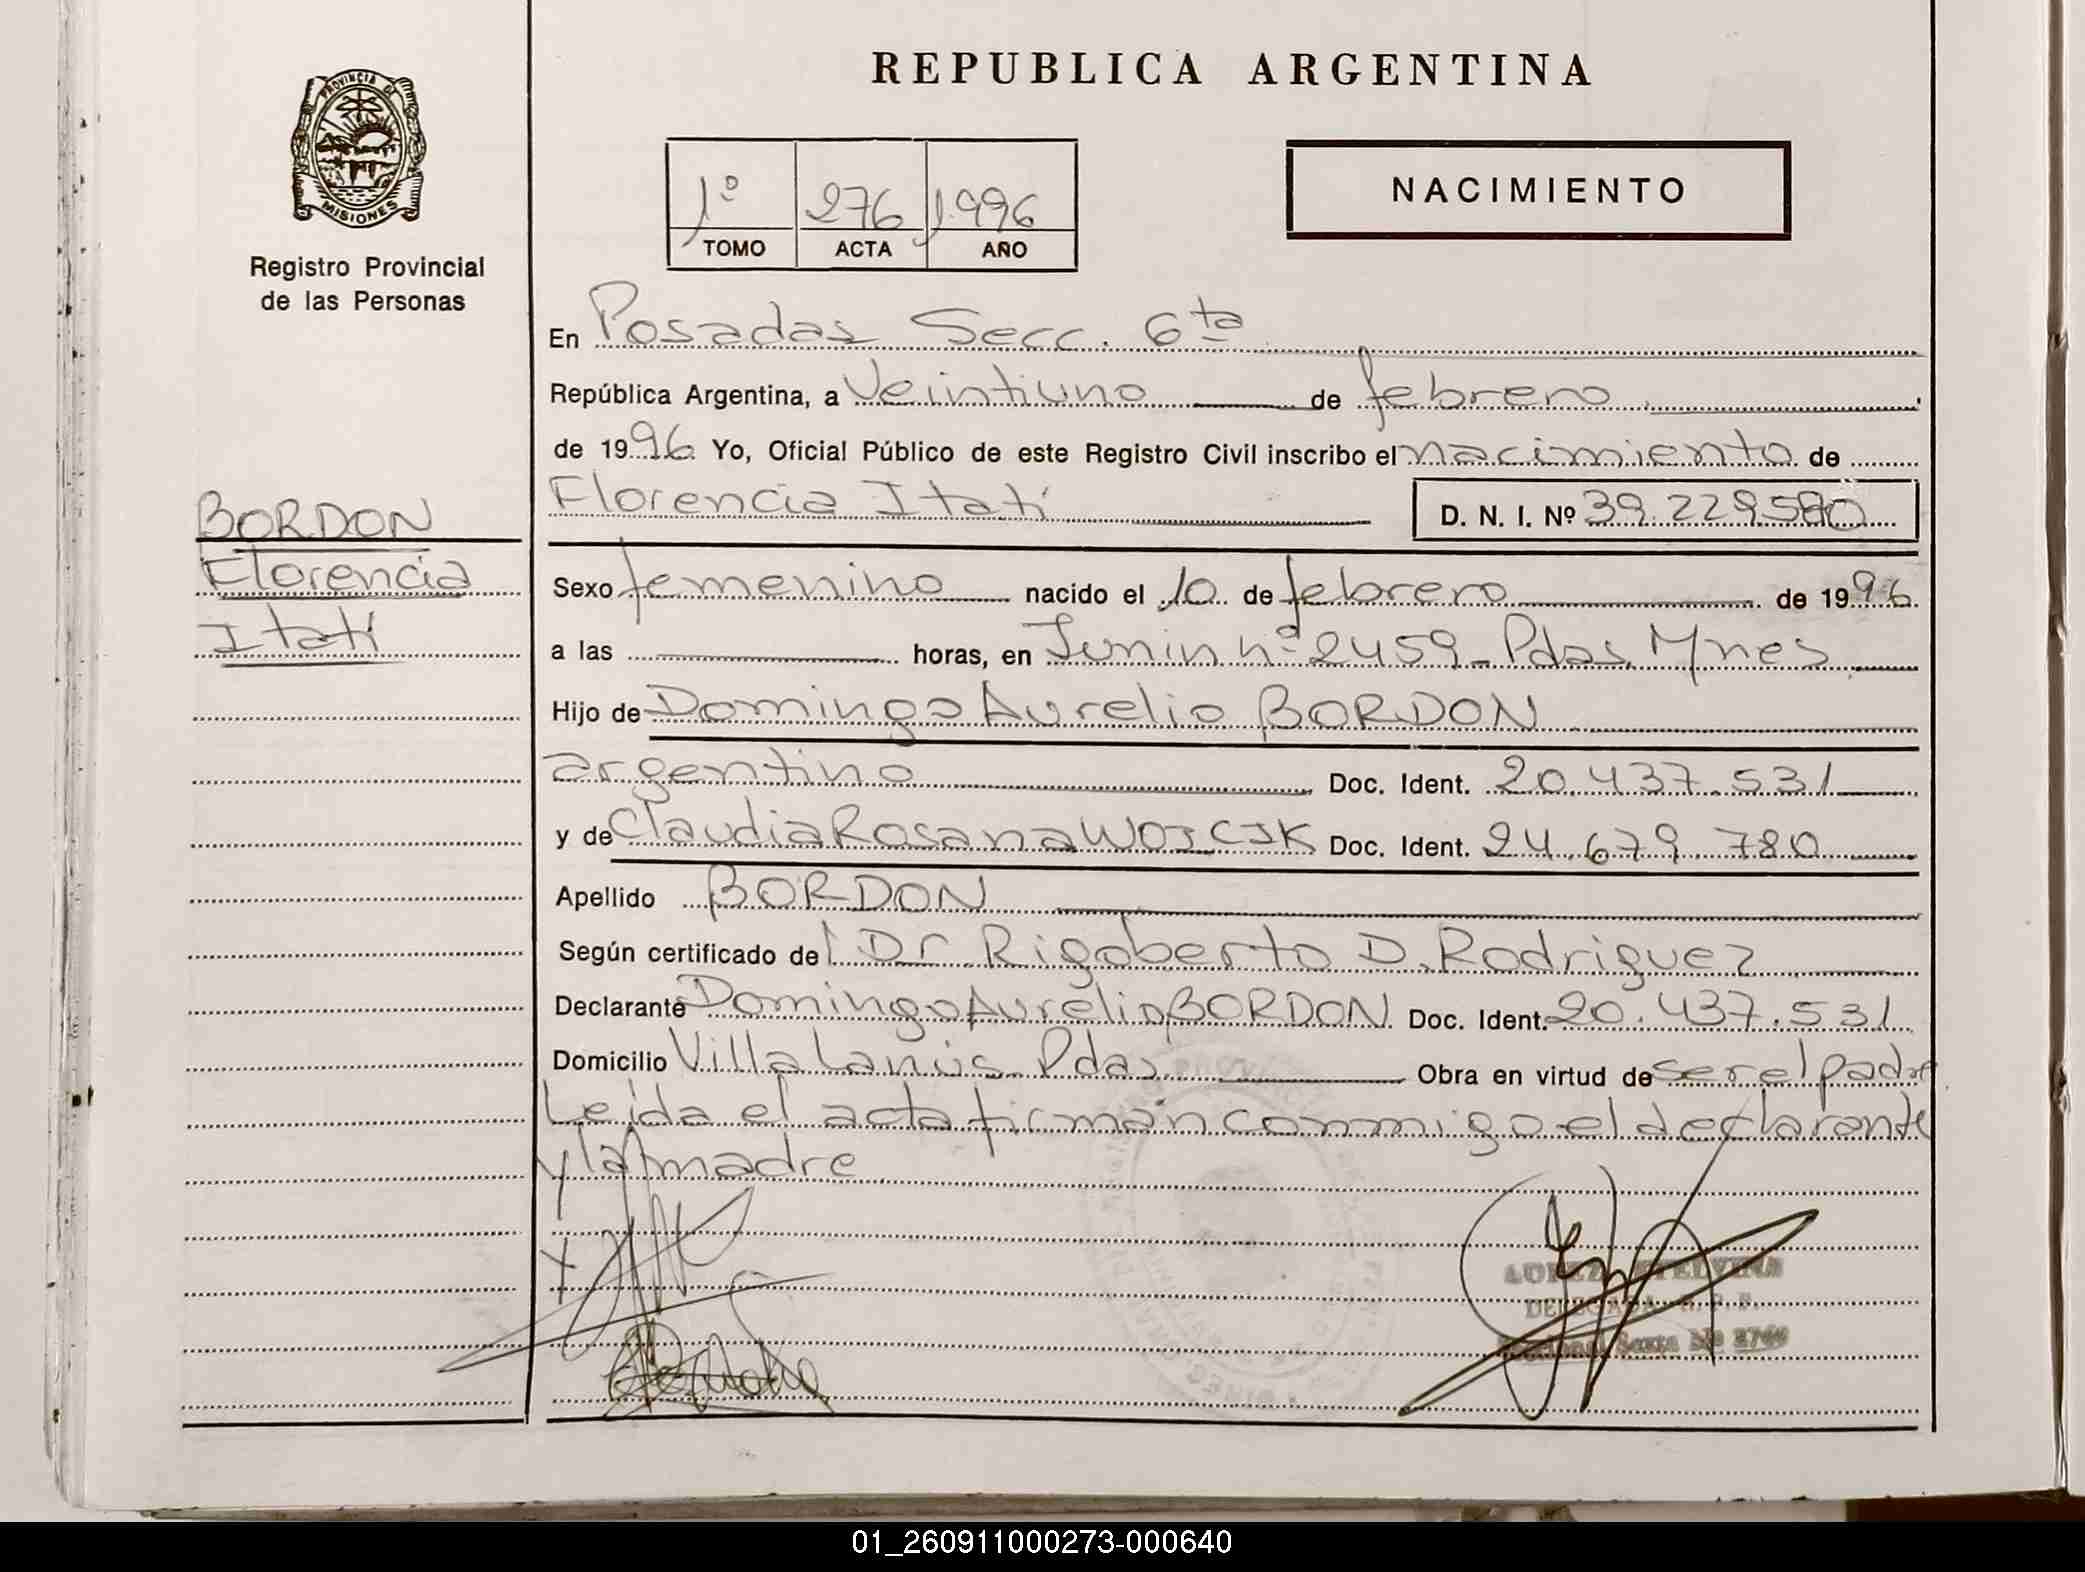 REPUBLICA ARGENTINA
PROVINCIA DE
MISIONES
Registro Provincial
de las Personas
1º 276 1996
TOMO ACTA AÑO
NACIMIENTO
En Posadas Secc. 6ta
República Argentina, a Veintiuno de febrero
de 1996 Yo, Oficial Público de este Registro Civil inscribo el nacimiento de
Florencia Itatí D. N. I. Nº 39.229.580
BORDON
Florencia
Itatí
Sexo femenino nacido el 10 de febrero de 1996
a las horas, en Junin nº 2459 - Pdas. Mnes
Hijo de Domingo Aurelio BORDON
argentino Doc. Ident. 20.437.531
y de Claudia Rosana WOJCIK Doc. Ident. 24.679.780
Apellido BORDON
Según certificado del Dr. Rigoberto D. Rodriguez
Declarante Domingo Aurelio BORDON Doc. Ident. 20.437.531
Domicilio Villa Lanús Pdas. Obra en virtud de ser el padre
Leída el acta firman conmigo el declarante
y la madre
LOPEZ ETELVINA
DELEGADA R. P. P.
Sexta
01_260911000273-000640